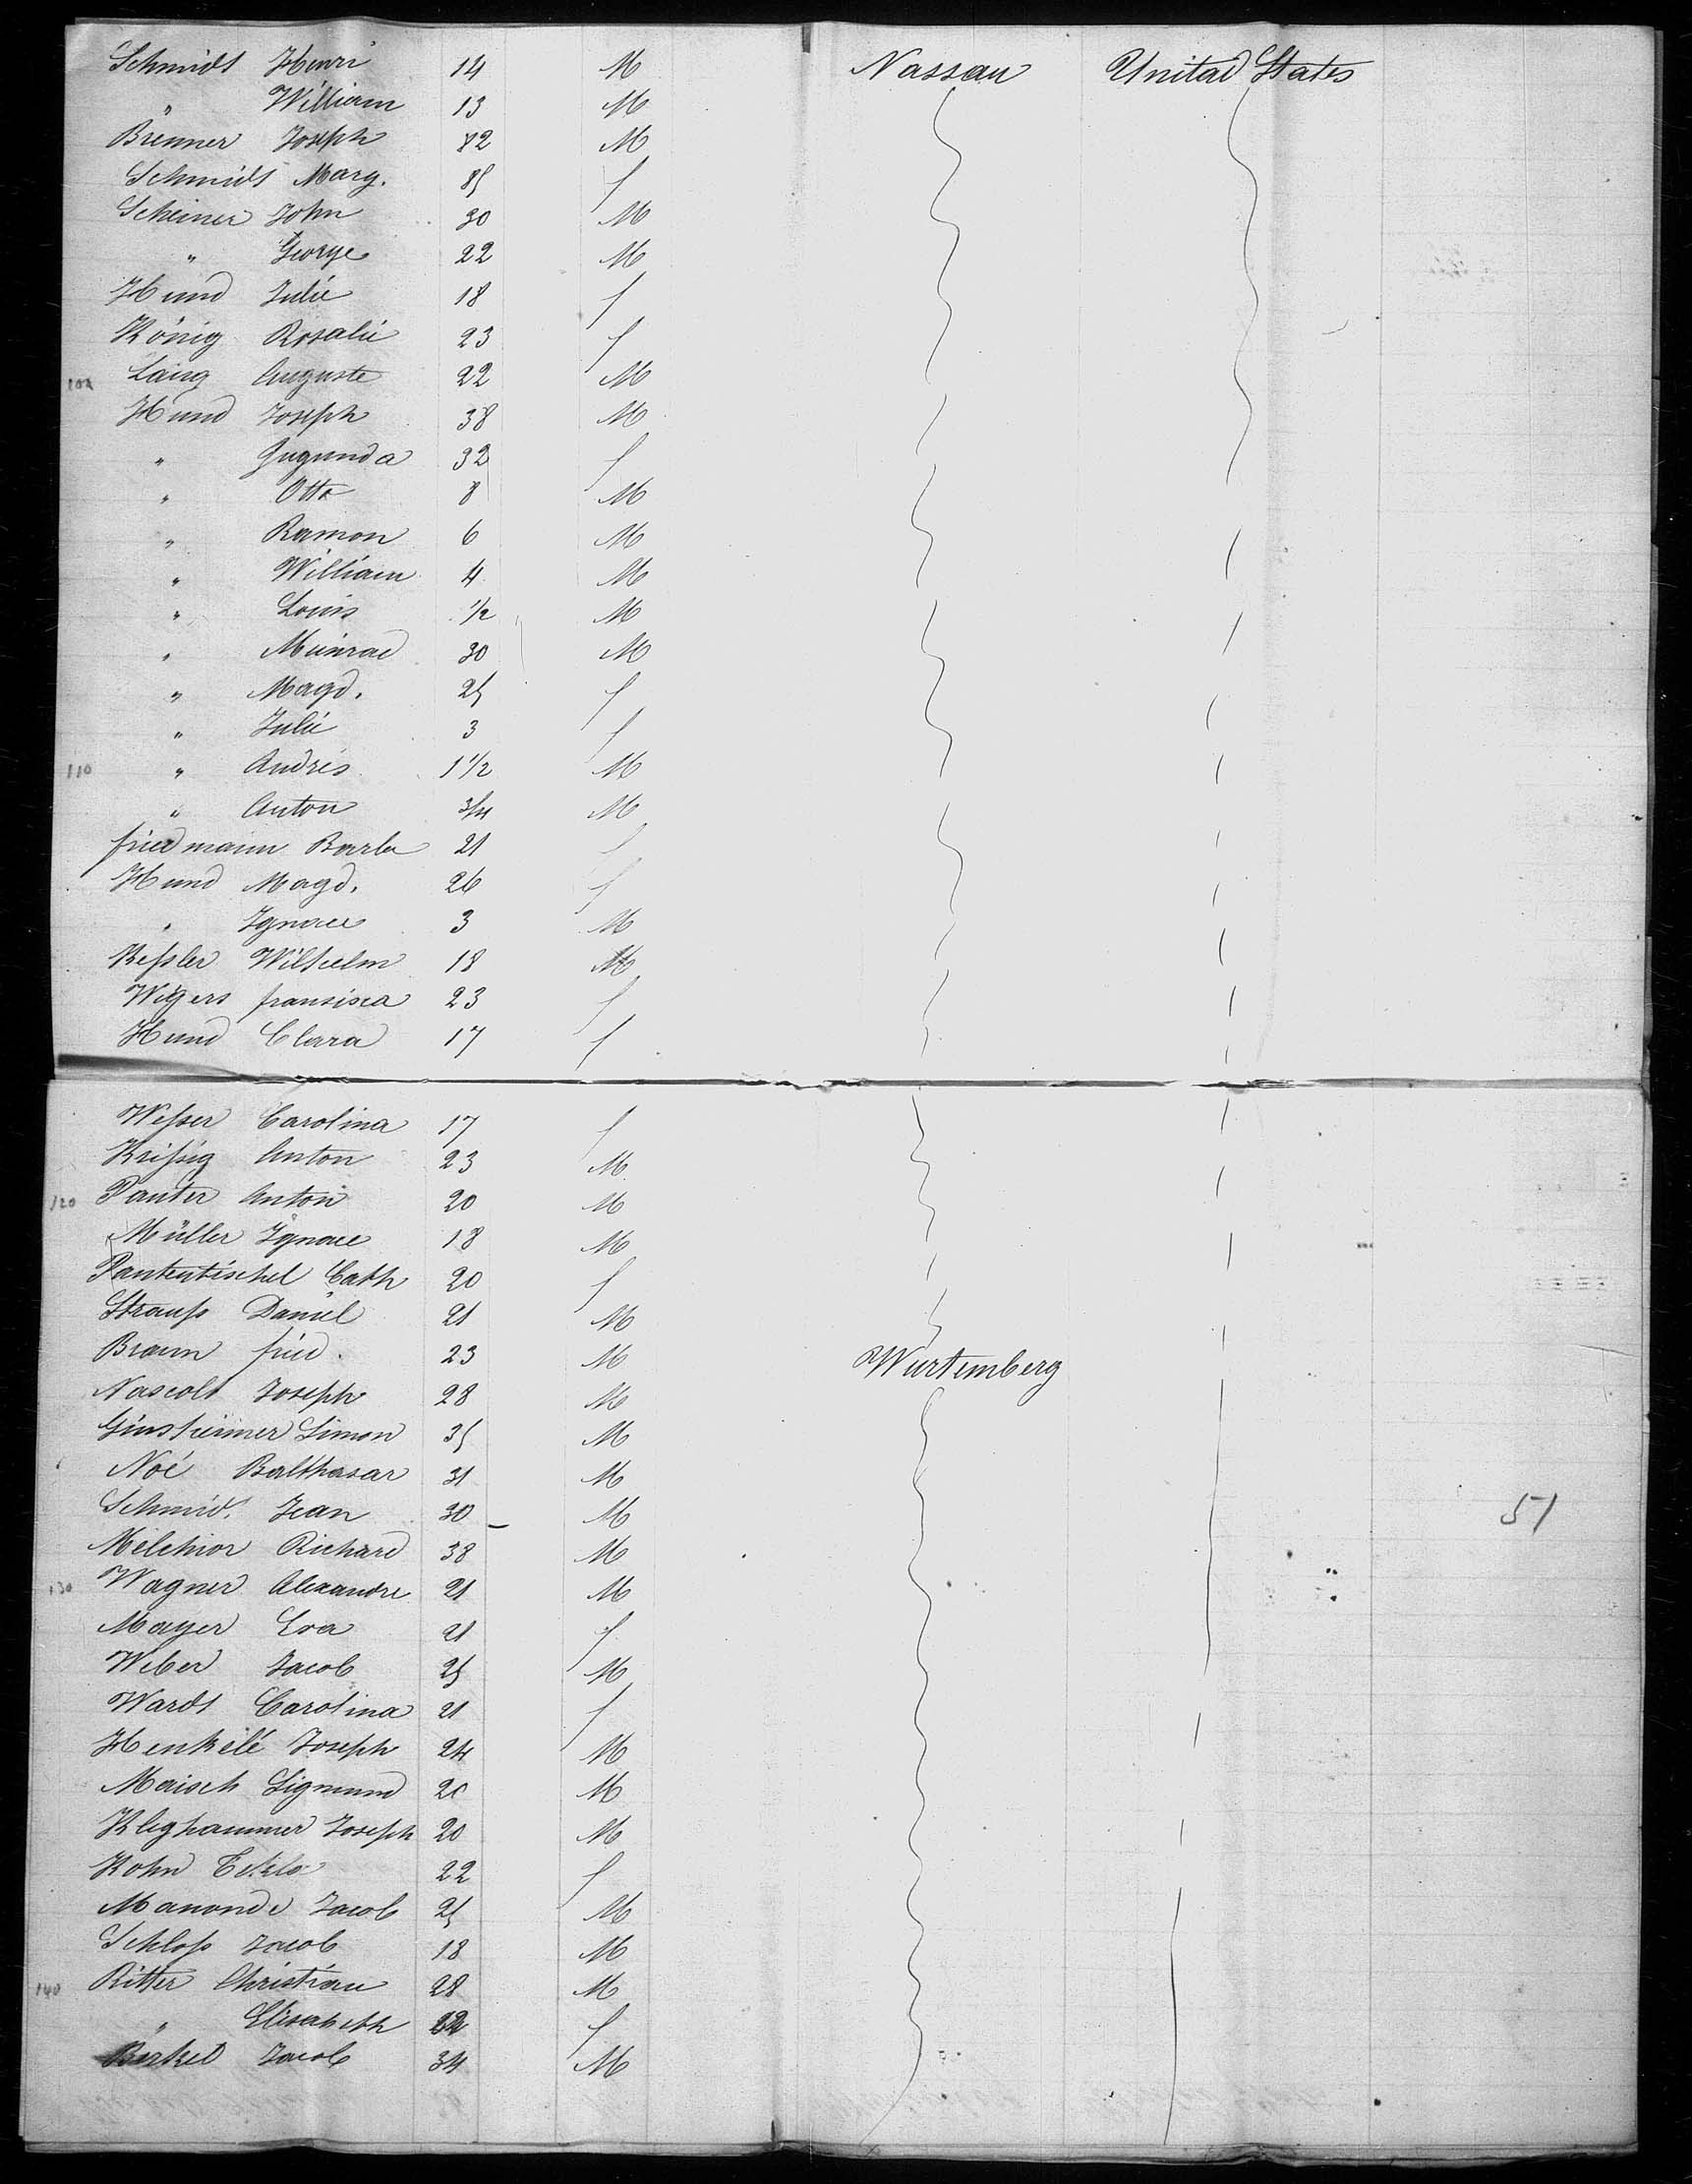 Schmidt Henri 14 M Nassau United States
" William 13 M
Brenner Joseph 82 M
Schmidt Marg. 85 f
Scheiner John 30 M
" George 22 M
Hund Julie 18 f
König Rosalie 23 f
Laing Auguste 22 M
Hund Joseph 38 M
" Gugunda 32 f
" Otto 8 M
" Ramon 6 M
" William 4 M
" Louis 1/2 M
" Meinrad 30 M
" Magd. 25 f
" Julie 3 f
110 " Andrés 1 1/2 M
" Anton 3/4 M
friedmann Barba 21 f
Hund Magd. 26 f
" Ignace 3 M
Keßler Wilhelm 18 M
Wigers fransisca 23 f
Hund Clara 17 f
Weßer Carolina 17 f
Krißig Anton 23 M
120 Panter Anton 20 M
Müller Ignace 18 M
Pantentischel Cath 20 f
Strauß Daniel 21 M
Braun fried. 23 M Wurtemberg
Nascolt Joseph 28 M
Ginsheimer Simon 35 M
Noé Balthasar 31 M
Schmid. Jean 30 M 51
Melchior Richard 38 M
130 Wagner Alexandre 21 M
Mayer Eva 21 f
Weber Jacob 25 M
Wardt Carolina 21 f
Henkélé Joseph 24 M
Maisch Sigmund 20 M
Kleghammer Joseph 20 M
Kohn Tekla 22 f
Manonde Jacob 25 M
Schloß Jacob 18 M
140 Ritter Christian 28 M
" Elisabeth 22 f
Birkel Jacob 34 M